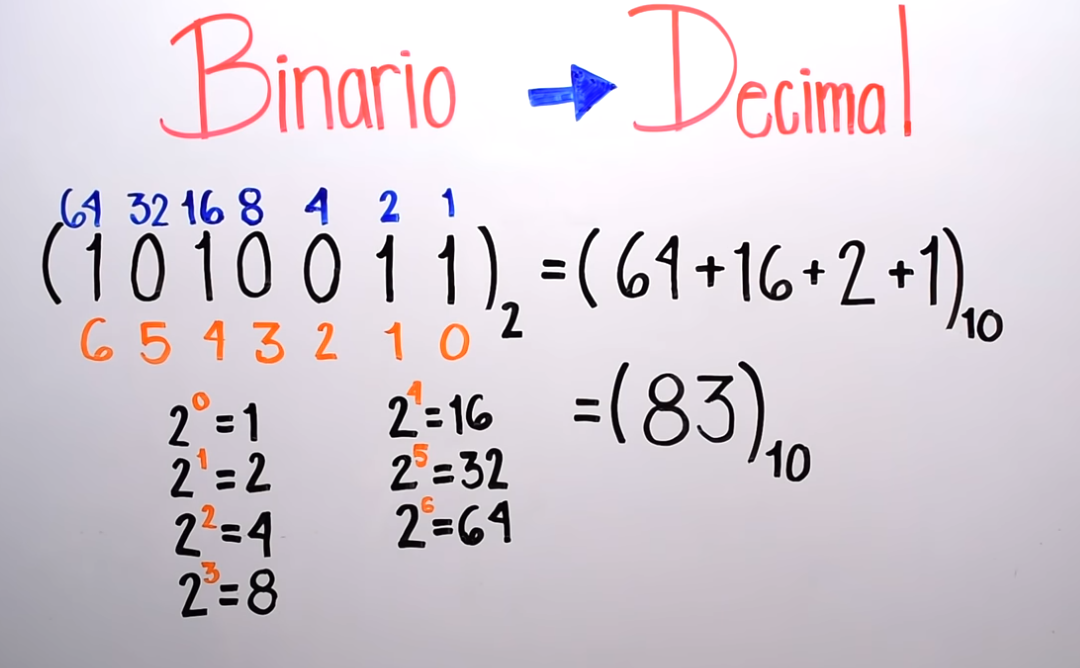 Binario → Decimal
64 32 16 8 4 2 1
(1 0 1 0 0 1 1)₂ = (64+16+2+1)₁₀
6 5 4 3 2 1 0
= (83)₁₀
2⁰=1
2¹=2
2²=4
2³=8
2⁴=16
2⁵=32
2⁶=64